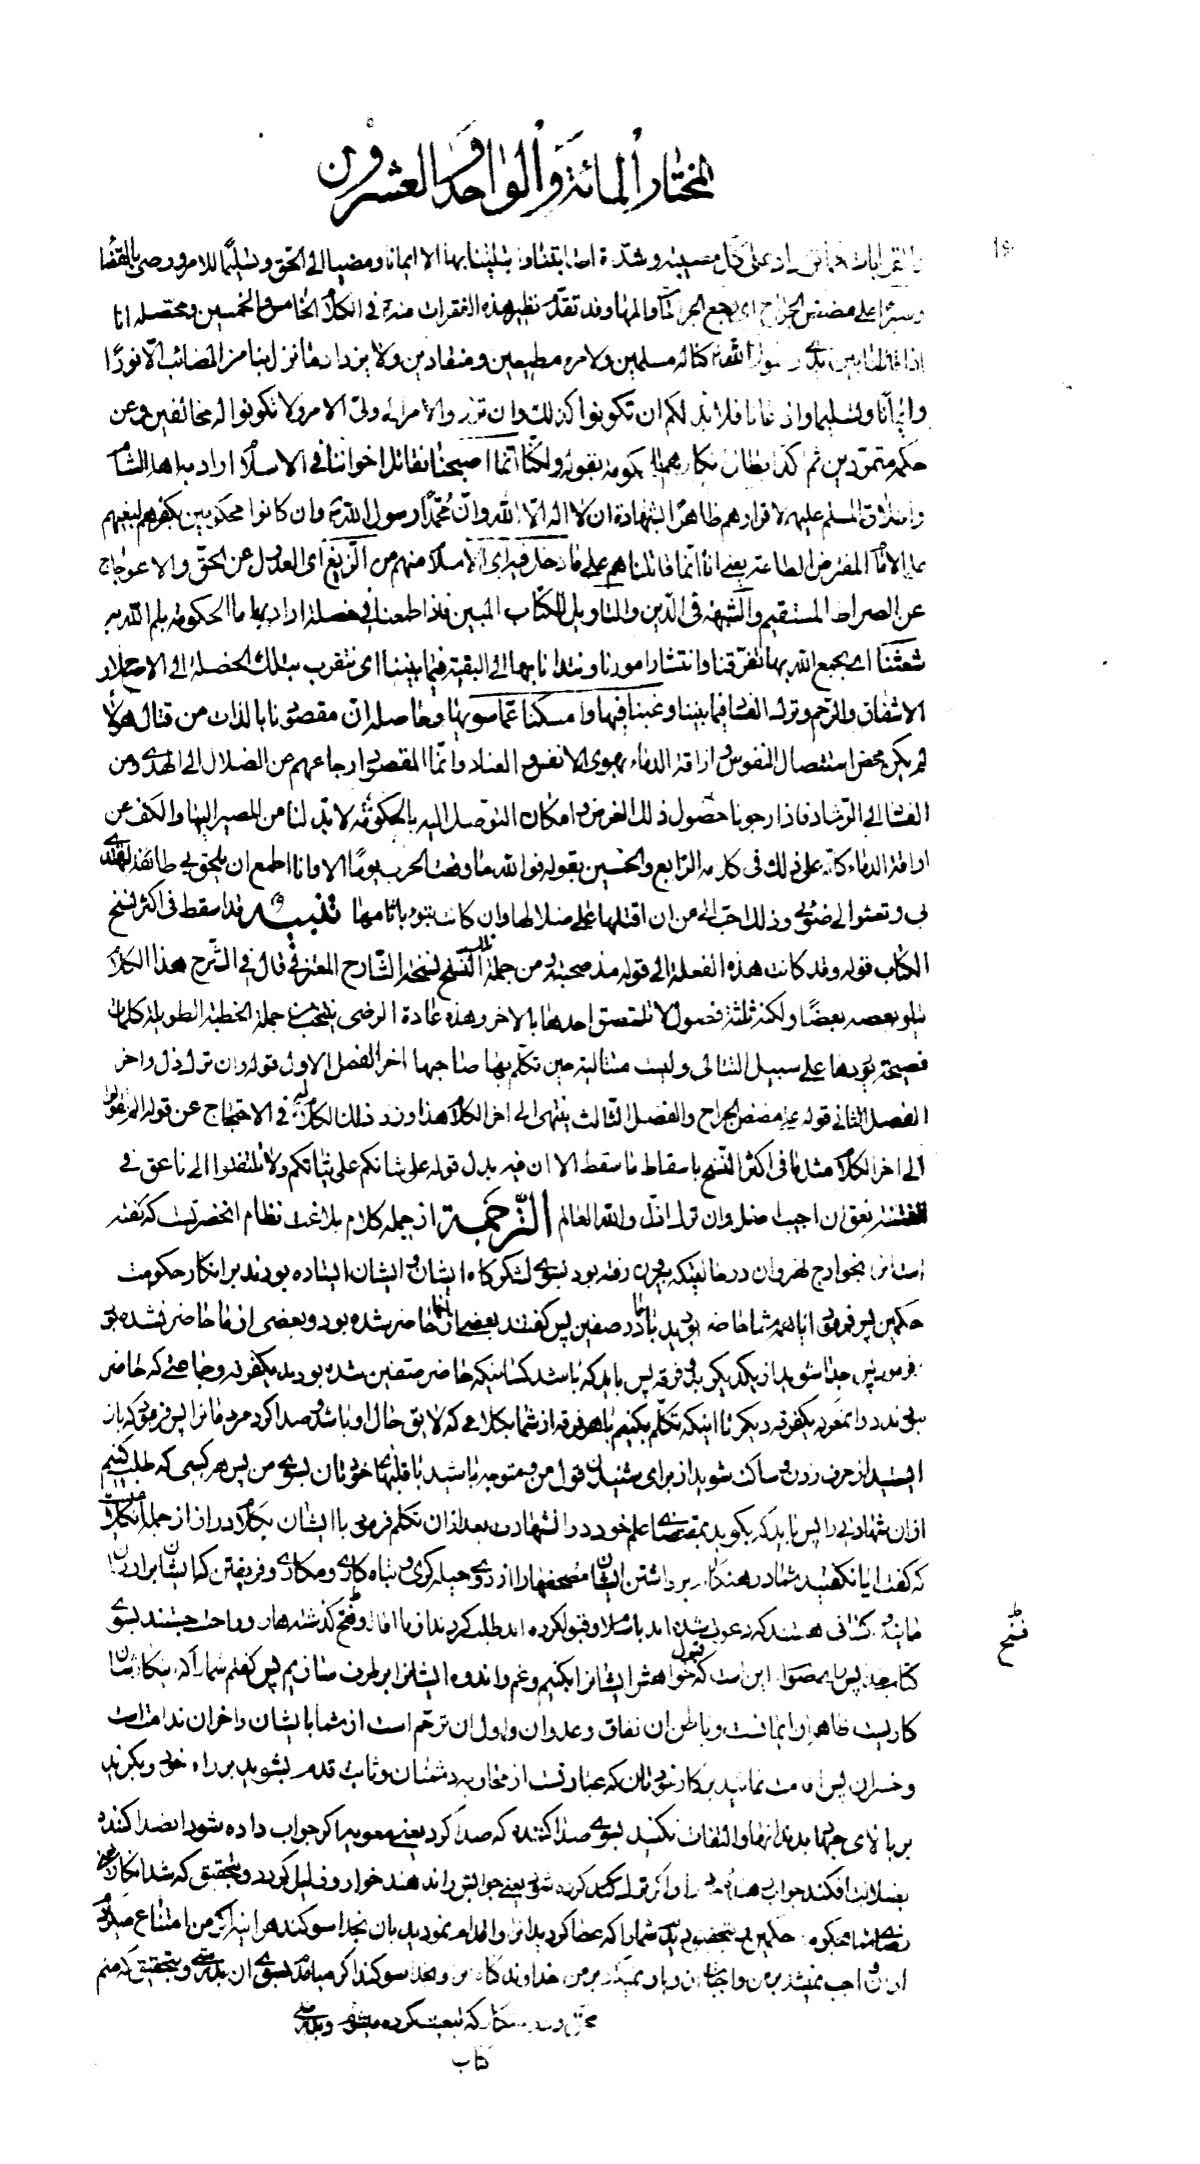 المختار المائة والواحد والعشرون
والقرابات فما نزداد على كل مصيبة وشدة ابتلينا بها الا ايمانا ومضيا الى الحق وتسليما للامر ورضى بالقضا
وصبرا على مضض الجراح اى وجع الجراح والمها وقد تقدم نظير هذه الفقرات منه في الكلام الخامس والخمسين ومحصله انا
اذا قاتلنا بين يدي رسول الله كنا له مسلمين ولامره مطيعين ومنقادين ولا يزداد ما نزل بنا من المصائب الا نورا
وايمانا وتسليما فلا بد لكم ان تكونوا كذلك وان ولى الامر ولا تكونوا له مخالفين وعن
حكمه متمردين ثم بقوله ولكنا انما اصبحنا نقاتل اخواننا في الاسلام اراد بها اهل الشام
واطلاق المسلم عليهم لاقرارهم ظاهرا بشهادة ان لا اله الا الله وان محمدا رسول الله وان كانوا محكومين بكفرهم لبغيهم
على الامام المفترض الطاعة يعنى انا انما قاتلناهم على ما دخل فيه اى الاسلام منهم من الزيغ اى العدول عن الحق والاعوجاج
عن الصراط المستقيم والشبهة في الدين والتاويل للكتاب المبين فاذا طمعنا في خصلة اراد بها ما الحكومة يلم الله به
شعثنا اى يجمع الله بها تفرقنا وانتشار امورنا ونتدانا بها الى البقية فيما بيننا اى نتقرب بتلك الخصلة الى الاصلاح
الاشفاق والترحم وترك القتال فيما بيننا رغبنا فيها وامسكنا عما سويها وحاصله ان مقصودنا بالذات من قتال هؤلا
لم يكن محض استئصال النفوس و اراقة الدماء بهوى الانفس والعناد وانما المقصود ارجاعهم عن الضلال الى الهدى ومن
الى الرشاد فاذا رجونا حصول ذلك الغرض وامكان التوصل اليه بالحكومة لا بد لنا من المصير اليها والكف عن
اراقة الدماء كما نبه على ذلك فى كلامه الرابع والخمسين بقوله فوالله ما دفعت الحرب يوما الا وانا اطمع ان يلحق بى طائفة فتهتدى
بى وتعشوا الى ضوئى وذلك احب الى من ان اقتلها على ضلالها وان كانت تبوء باثامها تنبيه قد اسقط فى اكثر نسخ
الكتاب قوله وقد كانت هذه الفعلة الى قوله مذ صحبته ومن جملة النسخ نسخة الشارح المعتزلي قال فى الشرح هذا الكلام
يتلو بعضه بعضا ولكنه ثلثة فصول لا يلتصق احدها بالاخر وهذه عادة الرضى ينتخب من جملة الخطبة الطويلة كلمات
فصيحة يوردها على سبيل التتالى وليست متتالية حين تكلم بها صاحبها اخر الفصل الاول قوله وان ترك ذل واخر
الفصل الثانى قوله على مضض الجراح والفصل الثالث ينتهى الى اخر الكلام هذا وزد ذلك الكلام فى الاحتجاج عن قوله الم تقولوا
الى اخر الكلام مثل ما فى اكثر النسخ باسقاط ما سقط الا ان فيه بدل قوله على شانكم على نياتكم ولا تلتفتوا الى ناعق فى
الفتنة نعق ان اجيب اضل وان ترك اذل والله العالم الترجمة از جمله كلام بلاغت نظام انحضرتست كه گفته
است انرا بخوارج نهروان در حالتيكه بيرون رفته بود بسوى لشكرگاه ايشان و ايشان ايستاده بودند بر انكار حكومت
حكمين پس فرمود ايا همه شما حاضر بوديد با ما در صفين پس گفتند بعضى از ما حاضر شده بود و بعضى از ما حاضر نشده بود
فرمود پس جدا شويد از يكديگر دو فرقه پس بايد كه باشد كسانيكه حاضر صفين شده بوديد يكفرقه و جماعتى كه حاضر
نبودند در انموقع يكفرقه ديگر تا اينكه تكلم بكنيم با هر فرقه از شما بكلامى كه لايق حال او باشد و صدا كرد مردمانرا پس فرمود كه باز
ايستيد از حرف زدن و ساكت شويد از براى شنيدن قول من و متوجه باشيد با قلبهاى خودتان بسوى من پس هر كسى كه طلب كنيم
ازان شهادتى را پس بايد كه بگويد بمقتضاى علم خود در انشهادت بعد ازان تكلم فرمود با ايشان بكلام دراز از جمله انكلام
كه گفت ايا نگفتيد شما در هنگام برداشتن ايشان مصحفها را از روى حيله گرى و تباه كارى و مكارى و فريفتن كه ايشان برادران
ما و كسانى هستند كه دعوت شده اند باسلام و قبول كرده اند طلب كردند از ما اقاله و فسخ گذشته ها را و راحت جستند بسوى
كتاب خدا پس صواب اين است كه قبول خواهش ايشانرا بكنيم و غم و اندوه ايشانرا برطرف سازيم پس گفتم شما را كه اينكار ايشان
كاريست ظاهر ان ايمانست و باطن ان نفاق و عدوان و اول ان ترحم است از شما با ايشان و اخر ان ندامت است
و خسران پس اقامت نمائيد بر كار خودتان كه عبارتست از محاربه دشمنان و ثابت قدم بشويد بر راه خود و بگزيد
بر بالاى جهاد دندانها و التفات نكنيد بسوى صدا كننده كه صدا كرد يعنى معويه اگر جواب داده شود انصدا كننده
بضلالت افكند جواب دهنده را و اگر ترك كرده شود يعنى جوابش را ندهند خوار و ذليل گردد و بتحقيق كه شد اينكار
حكمين بتحقيق ديدم شما را كه عطا كرديد انرا و اقدام نموديد بان بخدا سوگند هر اينه اگر من امتناع ميكردم
ازان واجب نميشد بر من واجبات ان و بار نميكرد بر من خداوند گناه انرا و بخدا سوگند اگر ميامدم بسوى ان بدرستى و بتحقيق كه منم
محق كه تبعيت كرده ميشود و بدرستى
كتاب
فسخ